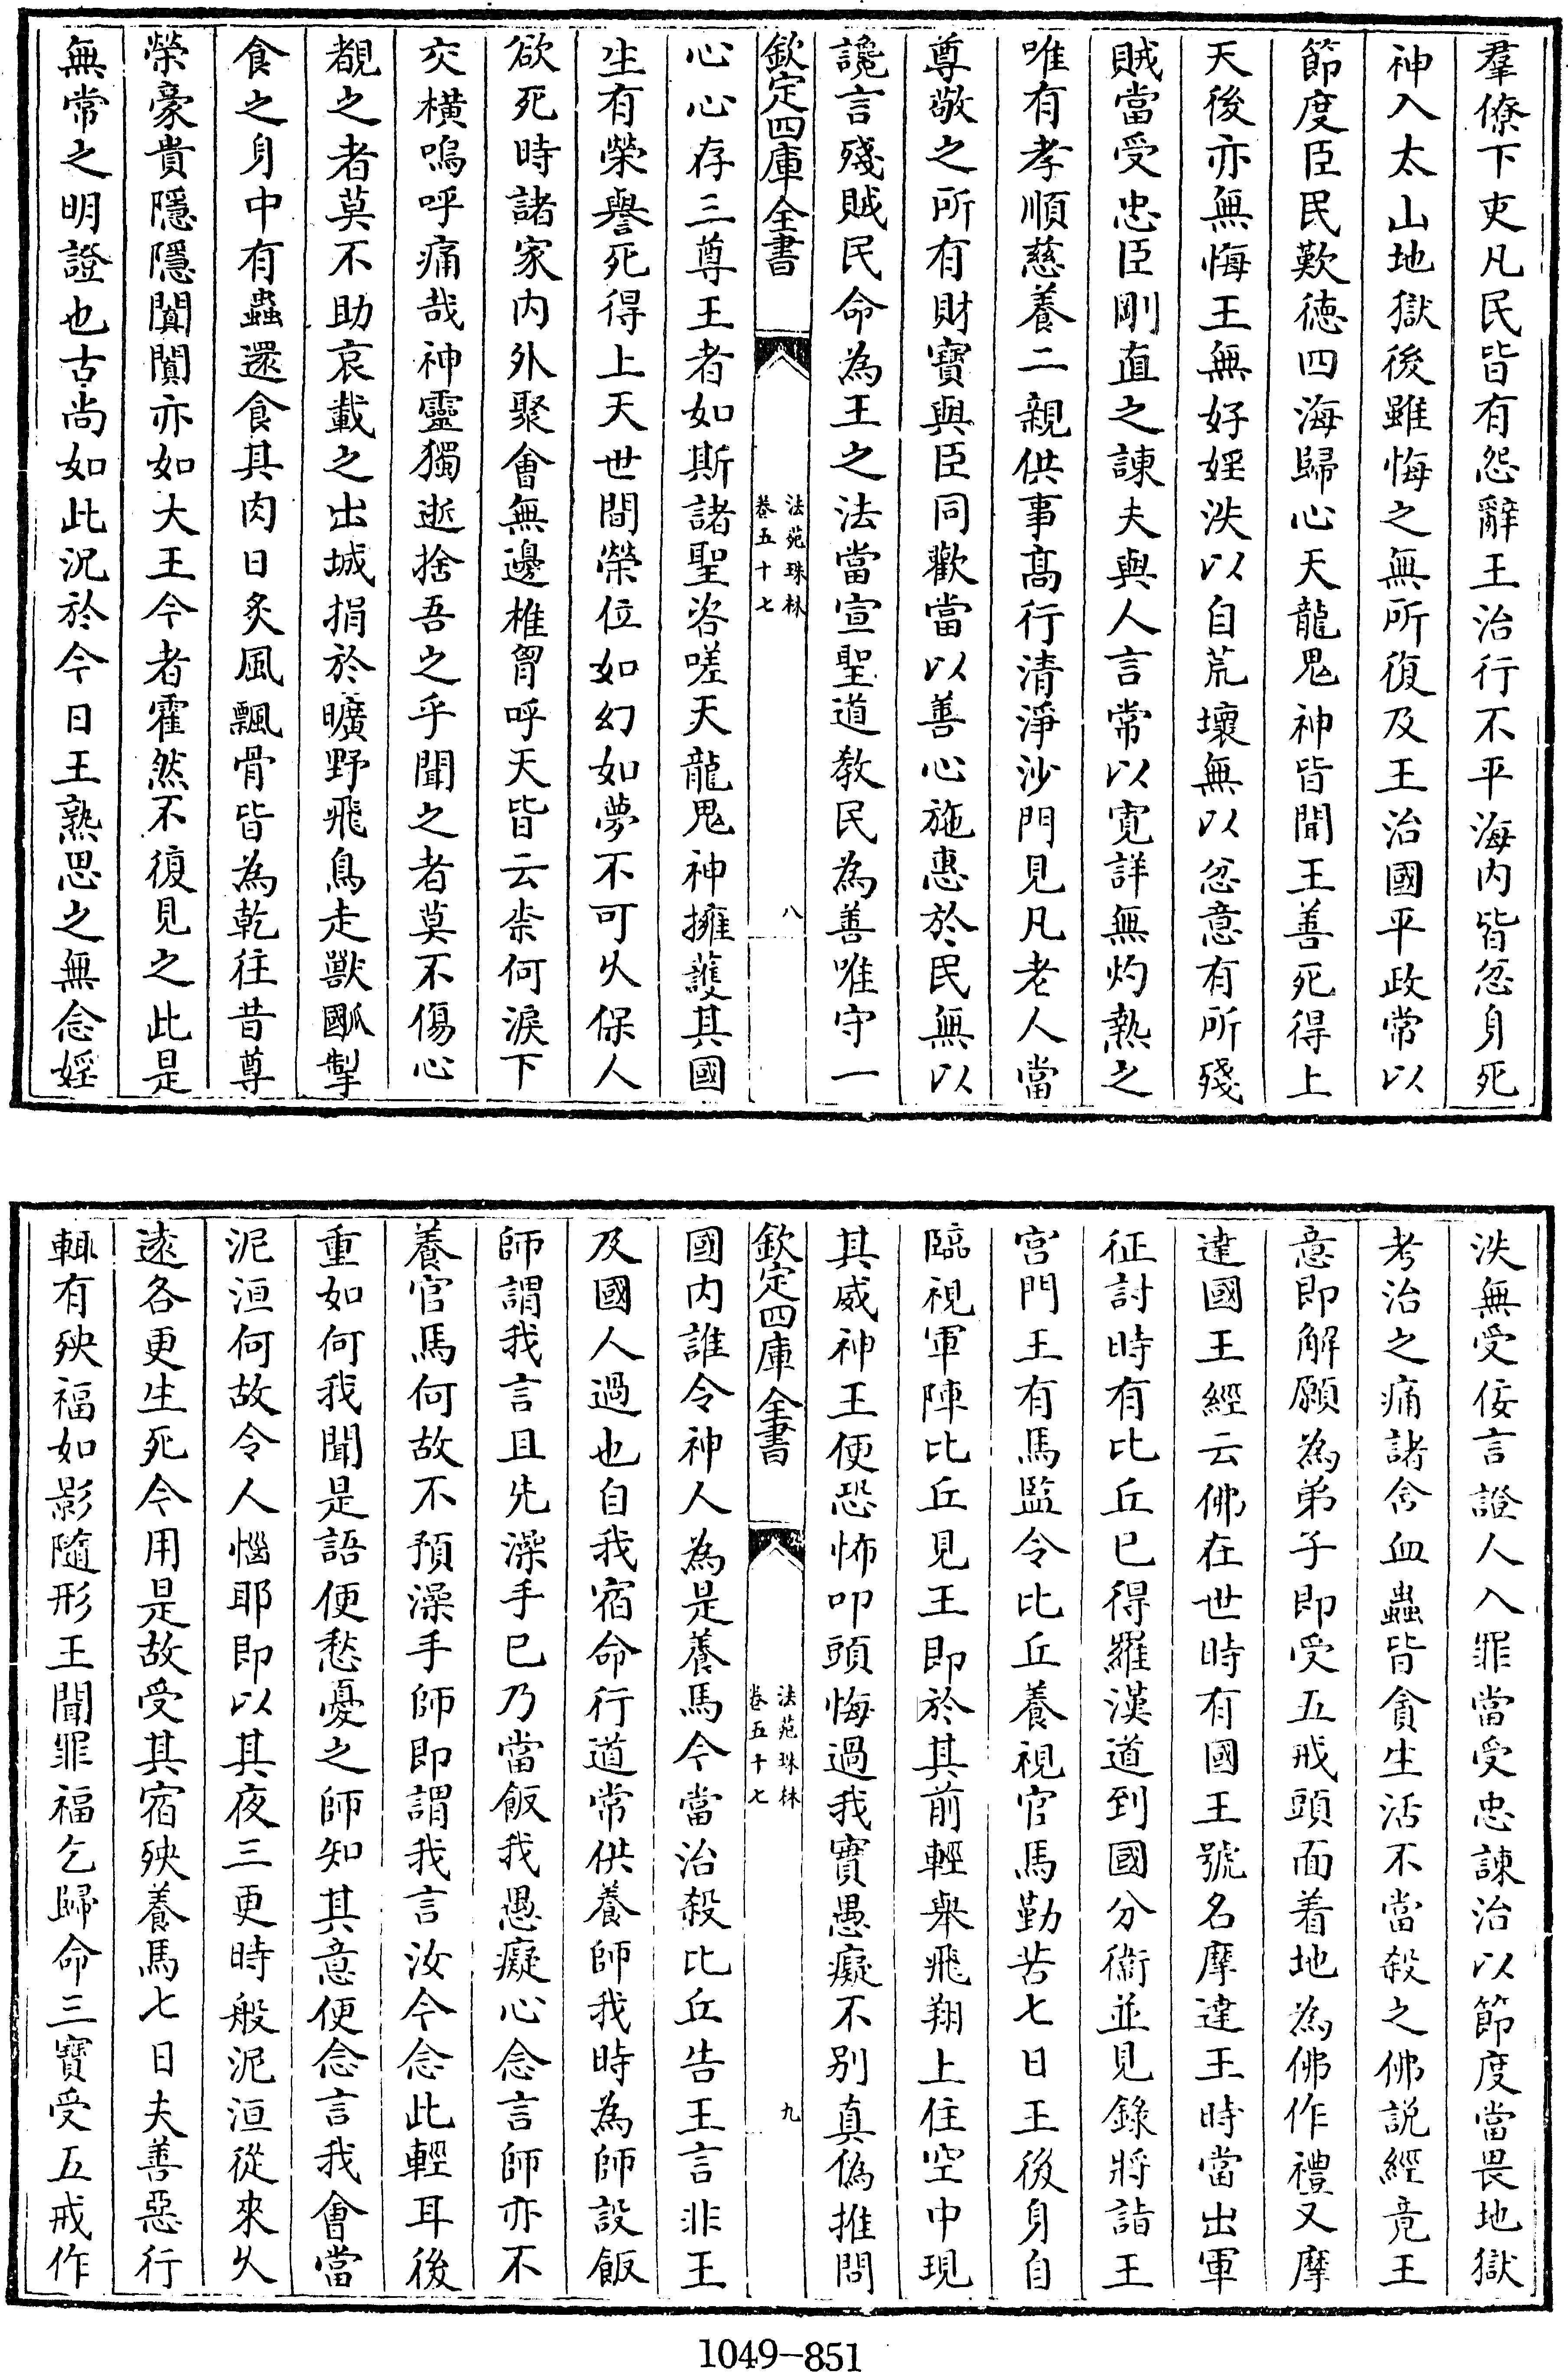 羣僚下吏凡民皆有怨辭王治行不平海内皆忿身死
神入太山地獄後雖悔之無所復及王治國平政常以
節度臣民歎徳四海歸心天龍鬼神皆聞王善死得上
天後亦無悔王無好婬泆以自荒壞無以忿意有所殘
賊當受忠臣剛直之諫夫與人言常以寛詳無灼熱之
唯有孝順慈養二親供事髙行清淨沙門見凡老人當
尊敬之所有財寳與臣同歡當以善心施惠於民無以
讒言殘賊民命為王之法當宣聖道教民為善唯守一
欽定四庫全書
法苑珠林
卷五十七
八
心心存三尊王者如斯諸聖咨嗟天龍鬼神擁護其國
生有榮譽死得上天世間榮位如幻如夢不可乆保人
欲死時諸家内外聚會無邊椎胷呼天皆云柰何淚下
交横嗚呼痛哉神靈獨逝捨吾之乎聞之者莫不傷心
覩之者莫不助哀載之出城捐於曠野飛鳥走獸䶧掣
食之身中有蟲還食其肉日炙風飄骨皆為乾往昔尊
榮豪貴隱隱闐闐亦如大王今者霍然不復見之此是
無常之明證也古尚如此況於今日王熟思之無念婬
泆無受佞言證人入罪當受忠諫治以節度當畏地獄
考治之痛諸含血蟲皆貪生活不當殺之佛説經竟王
意即解願為弟子即受五戒頭面着地為佛作禮又摩
達國王經云佛在世時有國王號名摩達王時當出軍
征討時有比丘已得羅漢道到國分衞並見錄將詣王
宮門王有馬監令比丘養視官馬勤苦七日王後身自
臨視軍陣比丘見王即於其前輕舉飛翔上住空中現
其威神王便恐怖叩頭悔過我實愚癡不别真偽推問
欽定四庫全書
法苑珠林
卷五十七
九
國内誰令神人為是養馬今當治殺比丘告王言非王
及國人過也自我宿命行道常供養師我時為師設飯
師謂我言且先澡手已乃當飯我愚癡心念言師亦不
養官馬何故不預澡手師即謂我言汝今念此輕耳後
重如何我聞是語便愁憂之師知其意便念言我會當
泥洹何故令人惱耶即以其夜三更時般泥洹從來乆
遠各更生死今用是故受其宿殃養馬七日夫善惡行
輙有殃福如影隨形王聞罪福乞歸命三寳受五戒作
1049-851